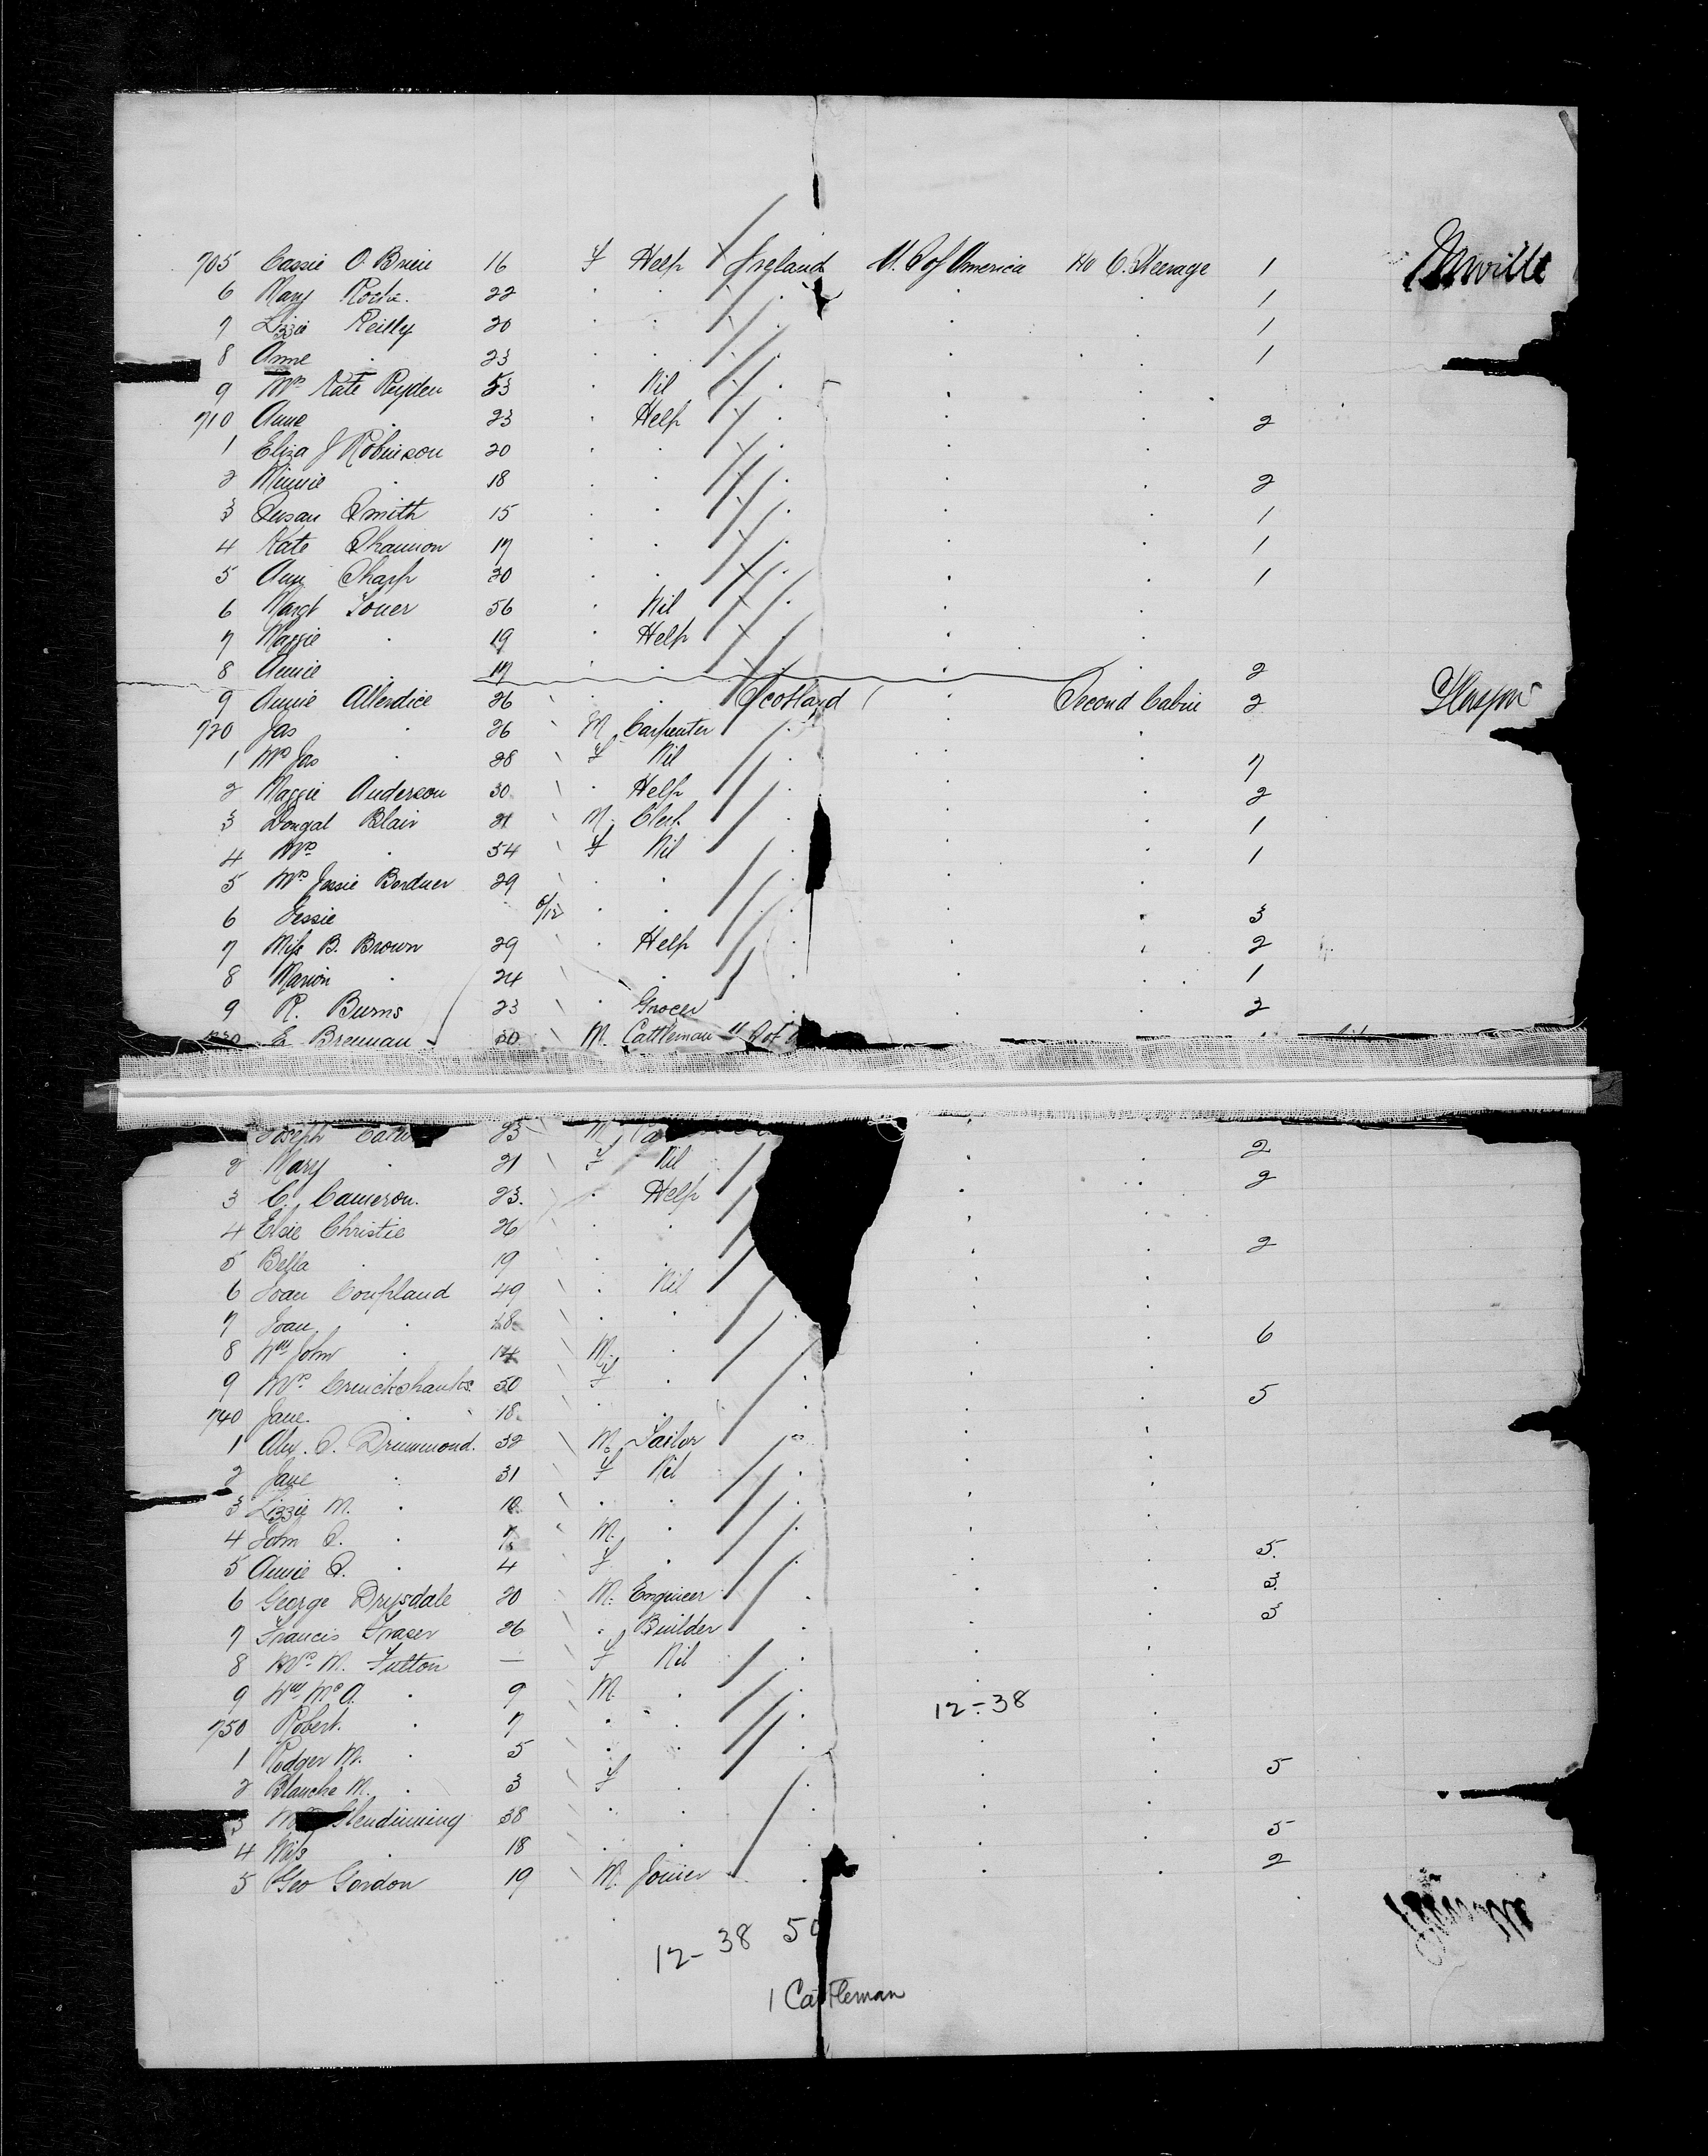 705 Cassie O'Brien 16 f Help Ireland U.S of America No 6. Steerage 1 Moville
6 Mary Roche. 22 1
7 Lizzie Reilly 20 1
8 Anne 23 1
9 Mrs Kate Ryder 53 Nil
710 Anne 23 Help 2
1 Eliza J Robinson 20
2 Minnie 18 2
3 Susan Smith 15 1
4 Kate Shannon 17 1
5 Amy Sharp 20 1
6 Margt Toner 56 Nil
7 Maggie 19 Help
8 Annie 17 2
9 Annie Allerdice 26 Scotland Second Cabin 2 Glasgow
720 Jas 26 M Carpenter
1 Mrs Jas 28 f Nil 7
2 Maggie Anderson 30 Help 2
3 Dougal Blair 21 M. Clerk 1
4 Mrs 54 f Nil 1
5 Mrs Jessie Bordner 29
6 Jessie /12 3
7 Miss B. Brown 29 Help 2
8 Marion 24 1
9 R. Burns 23 Grocer 2
730 E. Brennan 30 M. Cattleman
Joseph 23 M
2 Mary 21 f Nil 2
3 C. Cameron. 23. Help 2
4 Elsie Christie 26
5 Bella 19 2
6 Joan Coupland 49 Nil
7 Joan 18
8 Wm John 14 M. 6
9 Mrs. Cruickshanks. 50 f
740 Jane. 18. 5
1 Alex. S. Drummond. 32 M. Tailor
2 Jane 31 f Nil
3 Lizzie M. 10.
4 John S. 7. M.
5 Annie S. 4 f 5.
6 George Drysdale 20 M. Engineer 3.
7 Francis Fraser 26 Builder 3
8 Mrs. M. Fulton — f Nil
9 Wm McA. 9 M. 12-38
750 Robert. 7
1 Rodger M. 5
2 Blanche M. 3 f 5
3 Glendinning 38
4 Miss 18 5
5 Geo Gordon 19 M. Joiner 2
12-38 50
1 Cattleman